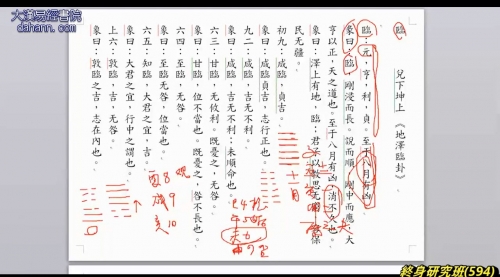 大漢易經書院
dahann.com
臨　兌下坤上　《地澤臨卦》
臨：元，亨，利，貞。至于八月有凶。
彖曰：臨，剛浸而長。說而順，剛中而應，大
亨以正，天之道也。至于八月有凶，消不久也。
象曰：澤上有地，臨；君子以教思无窮，容保
民无疆。
初九：咸臨，貞吉。
象曰：咸臨貞吉，志行正也。
九二：咸臨，吉无不利。
象曰：咸臨，吉无不利；未順命也。
六三：甘臨，无攸利。既憂之，无咎。
象曰：甘臨，位不當也。既憂之，咎不長也。
六四：至臨，无咎。
象曰：至臨无咎，位當也。
六五：知臨，大君之宜，吉。
象曰：大君之宜，行中之謂也。
上六：敦臨，吉，无咎。
象曰：敦臨之吉，志在內也。
十二月
8
9
10
終身研究班(594)